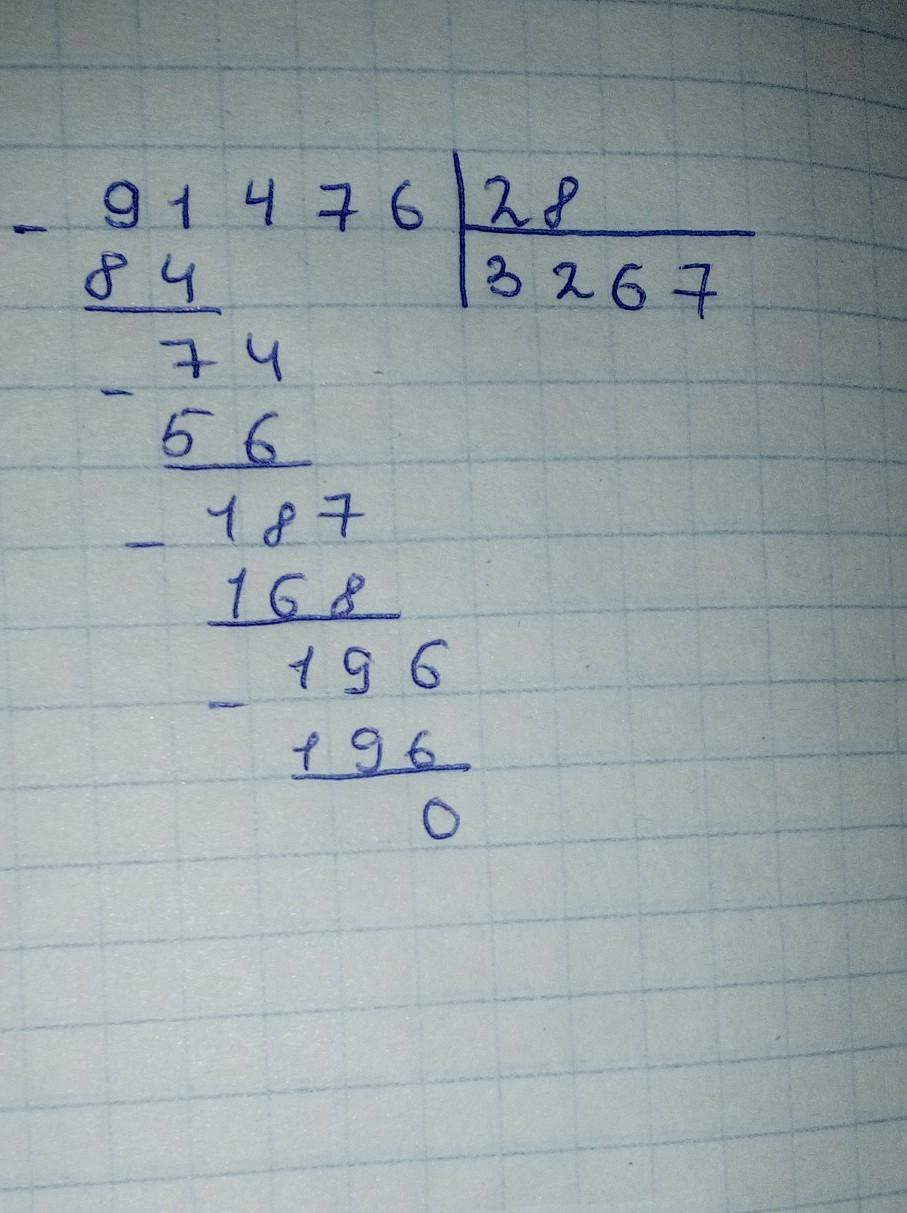 - 91476 | 28
84 | 3267
- 74
56
- 187
168
- 196
196
0